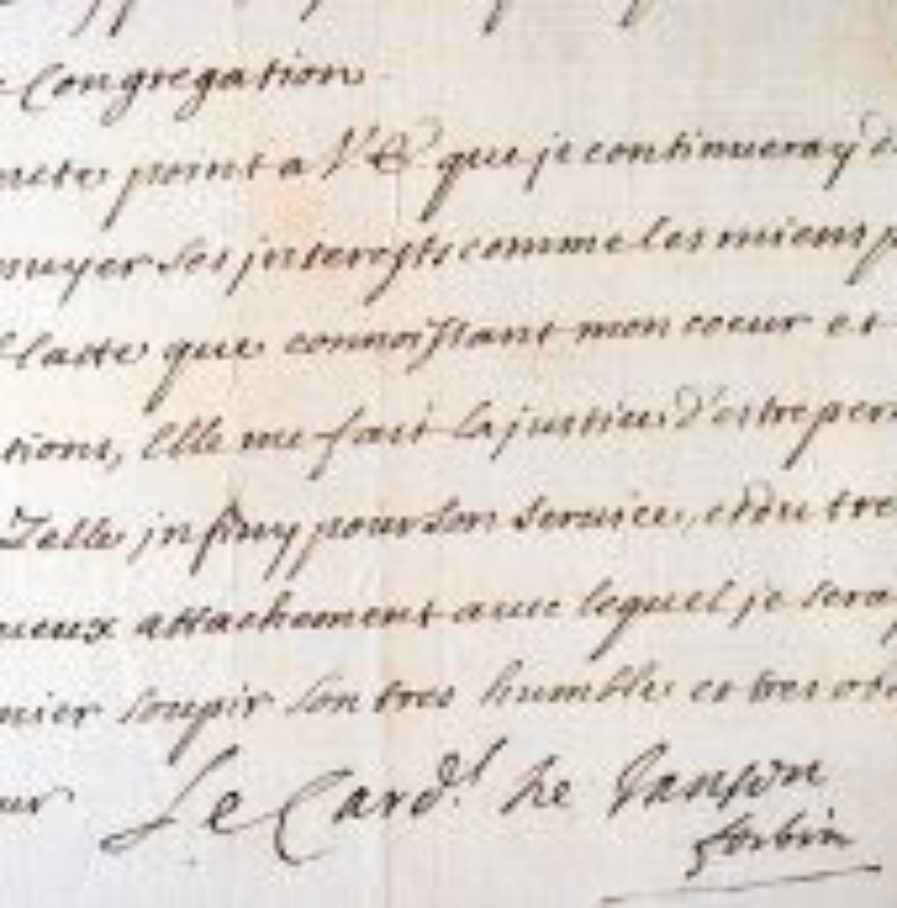 Congregation
point a V. E. que je continueray
ses jnterests comme les miens
que connoissant mon coeur et
tions, Elle me fait la justice d'estre per
Zelle jnfiny pour son service, et du tre
ueux attachement avec lequel je sera
nier soupir son tres humble et tres ob
eur Le Card.l de Janson
forbin